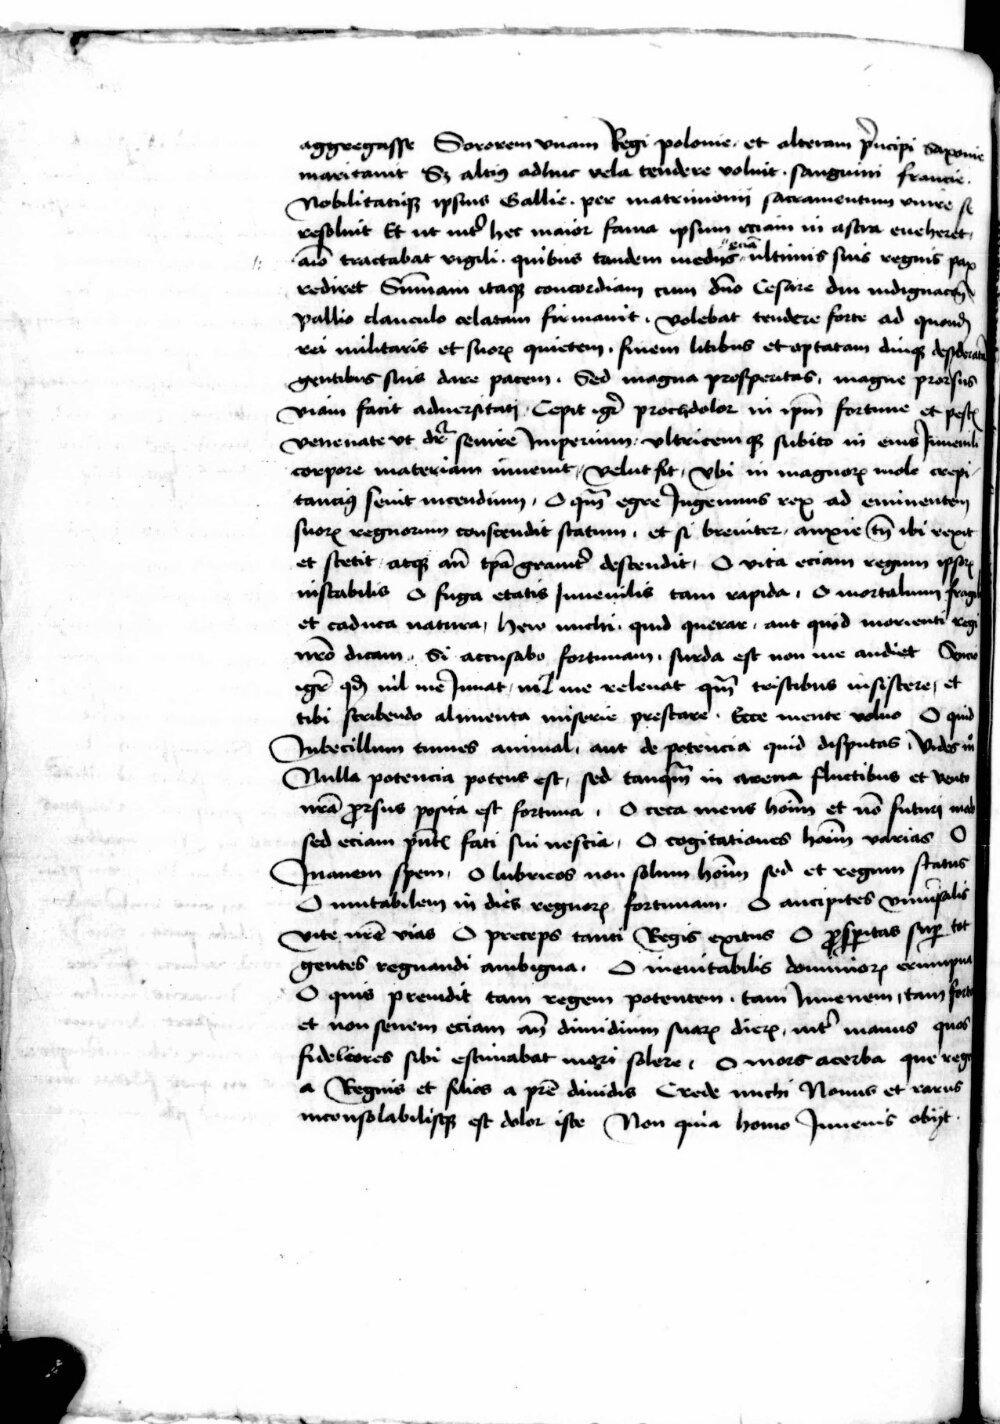 aggregasse Sororem vnam Regi polonie. et alteram p̄ncipi saxonie
maritauit Sʒ altiꝰ adhuc vela tendere voluit. sanguini francie.
Nobilitatiqꝫ ipsius Gallie. per matrimonii sacramentum vnire se
resoluit Et ut int̉ hec maior fama ipsum eciam in astra eueheret,
aīo tractabat vigili. quibus tandem medijs eciā ultimis suis regnis pax
rediret Sūmam itaqꝫ concordiam cum dn̄o Cesare diu indignacōis
pallio clanculo celatam firmauit. volebat tendere forte ad quondā
rei militaris et suoꝝ quietem. finem litibus et optatam diuqꝫ desideratā
gentibus suis dare pacem. Sed magna prosperitas, magne prorsus
viam facit aduersitati, Cepit igr̄ prochdolor in ip̄m fortune et pestꝭ
venenate vt dr̄ seuire Imperium. vltricemqꝫ subito in eius Iuuenili
corpore materiam inuenit, velut fit, vbi in magnoꝝ mole crepi
tanciꝰ seuit incendium, O qm̄ egre Ingenuus rex ad eminentem
suoꝝ regnorum conscendit statum, et si breuiter, anxie tn̄ ibi rexit
et stetit, atqꝫ an̄ tp̄a grauit̉ descendit, O vita eciam regum ipsoꝝ
instabilis O fuga etatis Iuuenilis tam rapida, O mortalium fragilis
et caduca natura, hew michi. quid querar, aut quid morienti regi
nr̄o dicam. Si accusabo fortunam. surda est non me audiet
igr̄ qd̄ nil me Iuuat, nil me releuat qm̄ tristibus insistere, et
tibi scribendo alimenta miserie prestare. Ecce mente voluo O quid
Inbecillum tumes animal, aut de potencia quid disputas, vides in
Nulla potencia potens est, sed tanqm̄ in arena fluctibus et vento
nr̄a prorsus posita est fortuna. O ceca mens hoīm et nō futuri modo
sed eciam pn̄tꝭ fati sui nescia, O cogitationes hoīm varias O
Inanem spem, O lubricos non solum hoīm sed et regum status
O mutabilem in dies regnoꝝ fortunam. O ancipites vniuersalis
vite nr̄e vias O preceps tanti Regis exitus O prosperitas super tot
gentes regnandi ambigua. O ineuitabilis dominioꝝ
O quis preuidit tam regem potentem. tam Iuuenem, tam forte
et non senem eciam an̄ dimidium suaꝝ dieꝝ, int̉ manus quos
fideliores sibi estimabat mori solere, O mors acerba que rege
a Regnis et filios a pr̄e diuidis Crede michi Nouus et rarus
inconsolabilisqꝫ est dolor iste Non quia homo Iuuenis obijt.